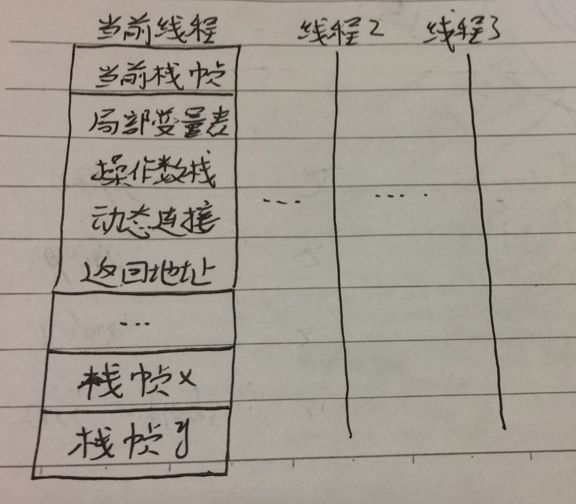 当前线程 线程2 线程3
当前栈帧
局部变量表
操作数栈
动态连接
.... ....
返回地址
...
栈帧x
栈帧y